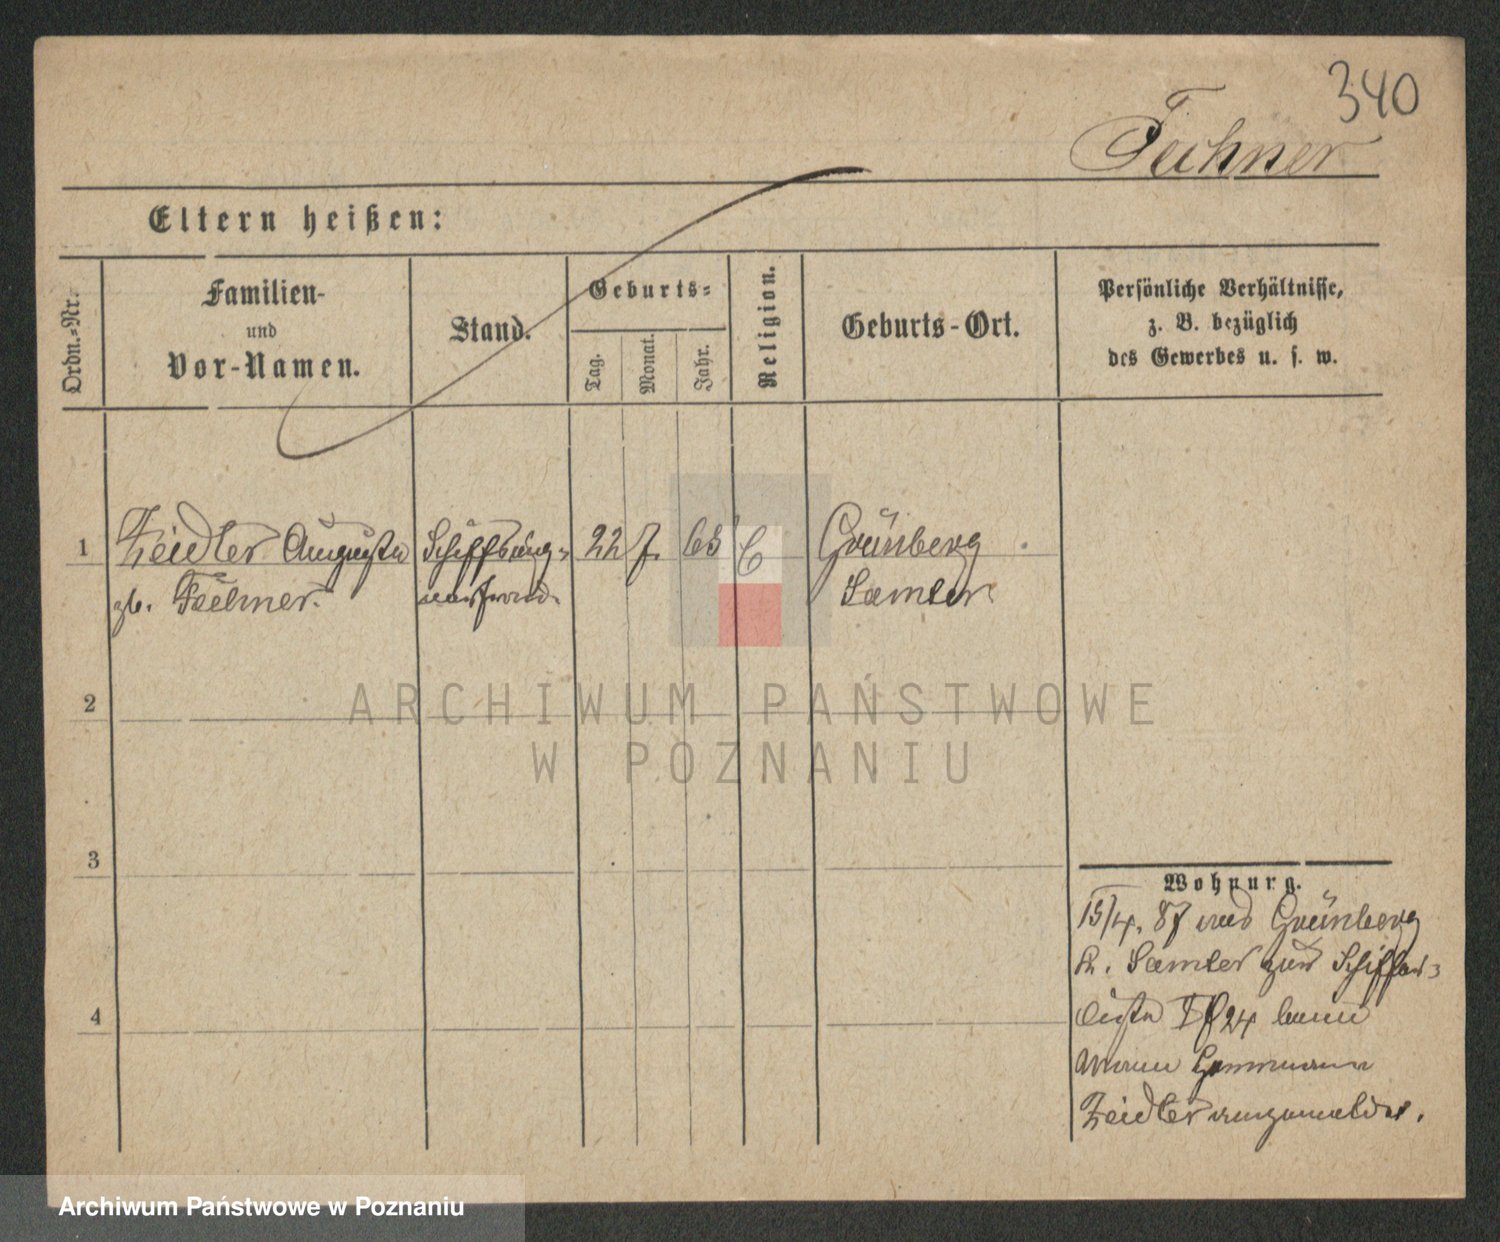 340
Fechner
Eltern heißen:
Ordn.-Nr.
Familien-
und
Vor-Namen.
Stand.
Geburts-
Tag.
Monat.
Jahr.
Religion.
Geburts-Ort.
Persönliche Verhältnisse,
z. B. bezüglich
des Gewerbes u. s. w.
1
Zeidler Auguste
gb. Fechner.
22 7. 63
Grünberg
Samter
2
ARCHIWUM PAŃSTWOWE
W POZNANIU
3
4
Wohnung.
15/4. 87 aus Grünberg
K. Samter zur
24 beim
Mann Hermann
Zeidler angemeldet.
Archiwum Państwowe w Poznaniu